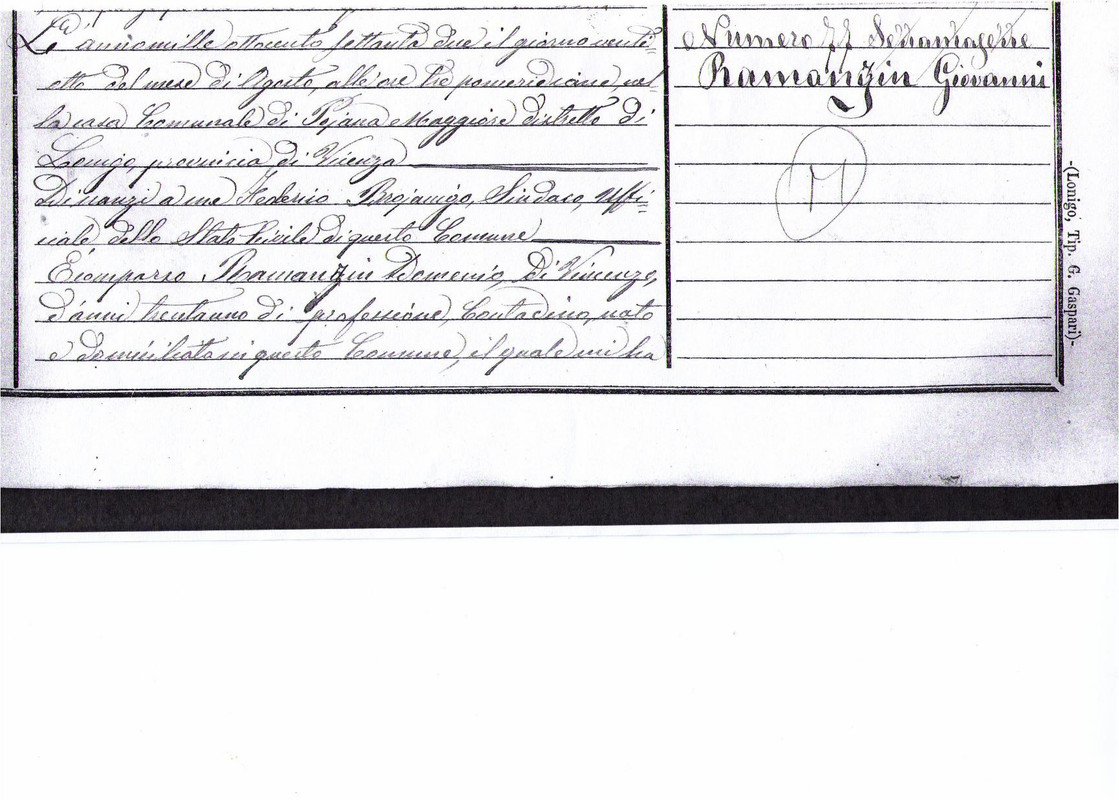 L'anno mille ottocento settanta due il giorno venti=
otto del mese di Agosto, alle ore tre pomeridiane, nel
la casa Comunale di Pojana Maggiore distretto di
Lonigo, provincia di Vicenza
Dinanzi a me Brojanigo, Sindaco, Uffi=
ciale dello Stato Civile di questo Comune
È comparso Ramanzin Domenico, Di Vincenzo,
d'anni trentanno di professione, Contadino, nato
e domiciliato in questo Comune, il quale mi ha
Numero 77 Settantasette
Ramanzin Giovanni
M
-(Lonigo, Tip. G. Gaspari)-